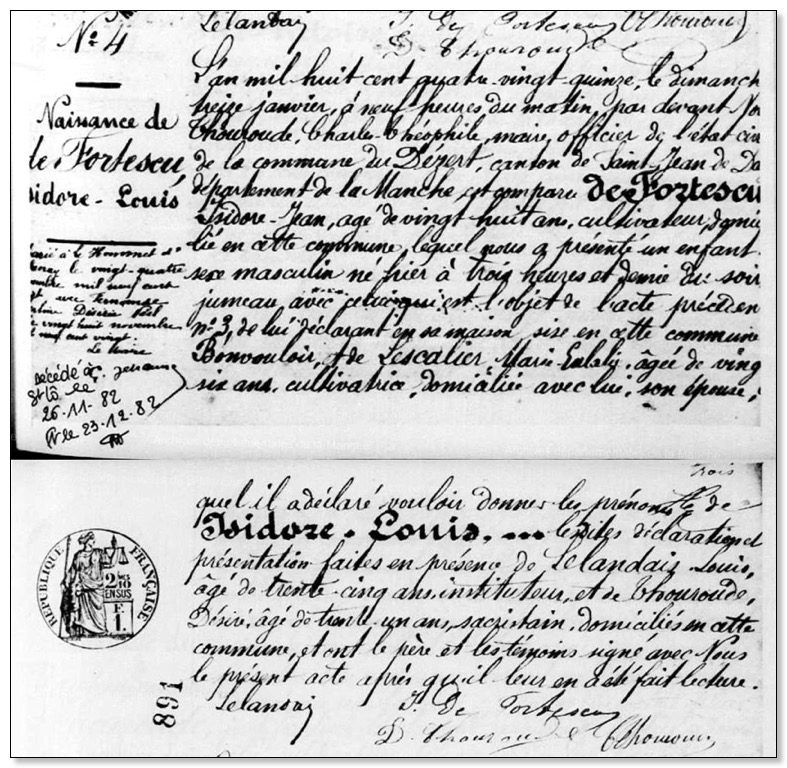 Nº 4
Lelandais
I. De Fortescu CThouroude
D. Thouroude
Naissance de
de Fortescu,
sidore-Louis
L'an mil huit cent quatre-vingt quinze, le dimanch
treize janvier, à neuf heures du matin, par devant No
Thouroude, Charles Théophile, maire, officier de l'état civ
de la commune du Dézert, canton de Saint-Jean de Da
département de la Manche, est comparu de Fortescu
Isidore-Jean, âgé de vingt huit ans, cultivateur, domici
lié en cette commune, lequel nous a présenté un enfant
sexe masculin né hier à trois heures et demie du soir
jumeau, avec celui qui est l'objet de l'acte précéden
nº 3, de lui déclarant en sa maison sise en cette commune
Bonvouloir, & de Lescalier Marie Eulalie, âgée de ving
six ans, cultivatrice, domiciliée avec lui, son épouse,
arié à le Hommet d'
le vingt-quatre
mil neuf cent
gt avec
Désirée
vingt huit novembre
neuf cent vingt.
Le Maire
Décédé à
St Lô le
26.11.82
le 23.12.82
trois
quel il a déclaré vouloir donner les prénoms de
Isidore-Louis. ... lesdites déclaration et
présentation faites en présence de Lelandais Louis,
âgé de trente-cinq ans, instituteur, et de Thouroude,
Désiré, âgé de trente-un ans, sacristain, domiciliés en cette
commune, et ont le père et les témoins signé avec Nous
le présent acte après qu'il leur en a été fait lecture.
Lelandais
I. De Fortescu
D. Thouroude CThouroude
RÉPUBLIQUE FRANÇAISE
2/10 EN SUS
F.
1.
891